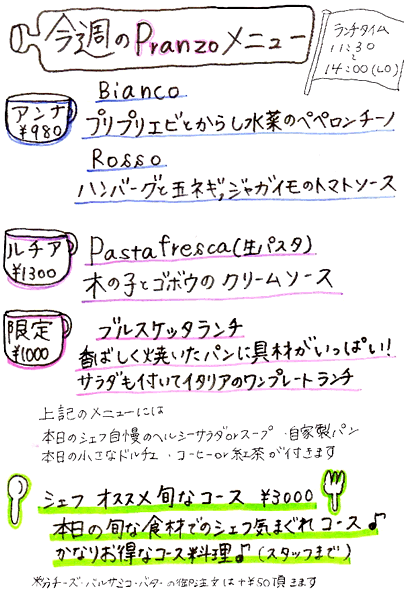 今週のPranzoメニュー
ランチタイム
11:30
~
14:00(LO)
Bianco
アンナ
¥980
プリプリエビとからし水菜のペペロンチーノ
Rosso
ハンバーグと玉ネギ,ジャガイモのトマトソース
ルチア
¥1300
Pastafresca(生パスタ)
木の子とゴボウのクリームソース
限定
¥1000
ブルスケッタランチ
香ばしく焼いたパンに具材がいっぱい!
サラダも付いてイタリアのワンプレートランチ
上記のメニューには
本日のシェフ自慢のヘルシーサラダorスープ ・自家製パン
本日の小さなドルチェ ・コーヒーor紅茶が付きます
シェフ オススメ旬なコース ¥3000
本日の旬な食材でのシェフ気まぐれコース♪
かなりお得なコース料理♪(スタッフまで)
※粉チーズ・バルサミコ・バターの御注文は+¥50頂きます